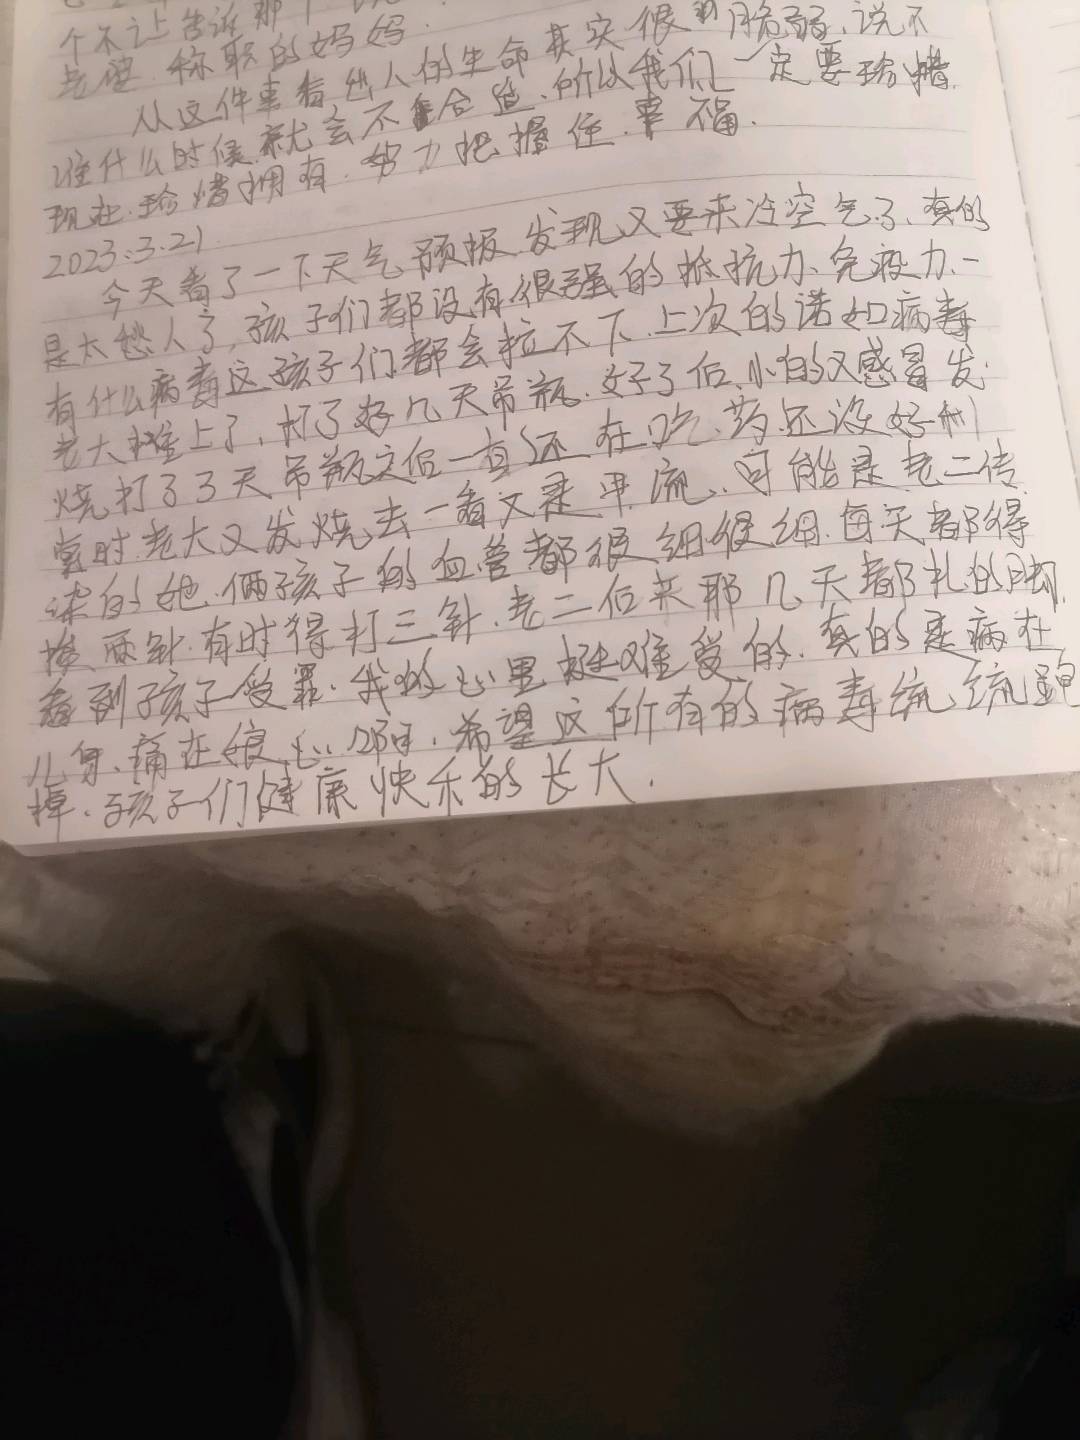 个不让告诉那个
老婆、称职的妈妈.
从这件事看出人的生命其实很脆弱、说不
准什么时候就会不合适、所以我们一定要珍惜
现在、珍惜拥有、努力把握住幸福.
2023.3.21
今天看了一下天气预报发现又要来冷空气了、真的
是太愁人了,孩子们都没有很强的抵抗力、免疫力、一
有什么病毒这孩子们都会拉不下、上次的诺如病毒
老大撞上了,打了好几天吊瓶、好了后、小的又感冒发
烧打了3天吊瓶之后一直还在吃药还没好利
索时老大又发烧去一看又是甲流、可能是老二传
染的她、俩孩子的血管都很细很细、每天都得
挨两针、有时得打三针、老二后来那几天都扎的脚、
看到孩子受罪、我的心里挺难受的、真的是病在
儿身、痛在娘心啊、希望这所有的病毒统统跑
掉、孩子们健康快乐的长大.